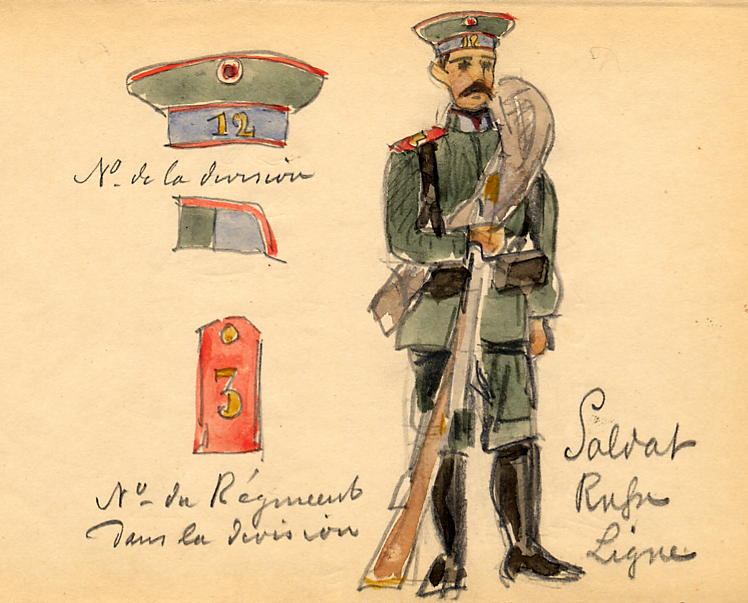 12
12
No de la division
3
No du Régiment
dans la division
Soldat
Russe
Ligne